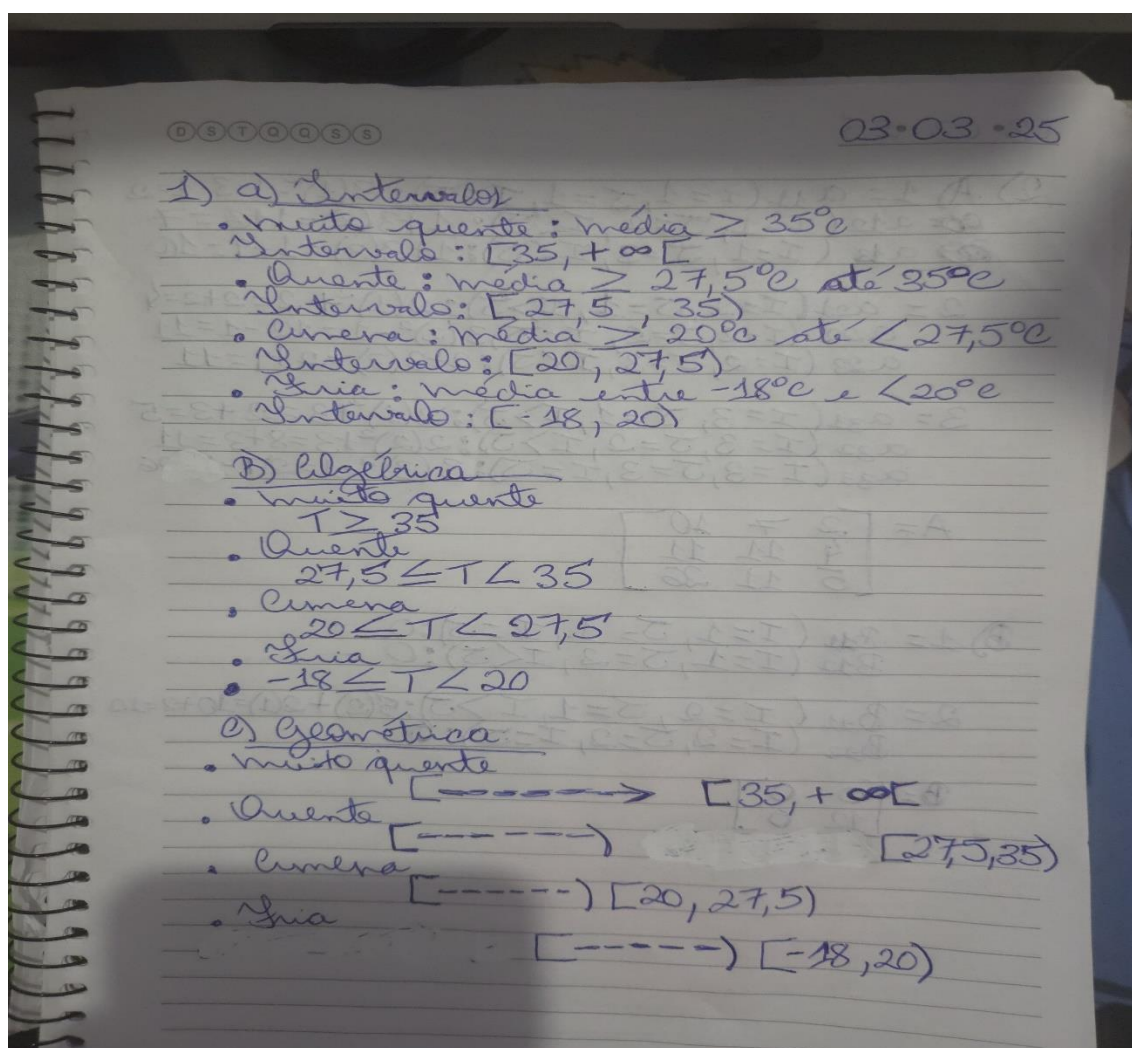 D S T Q Q S S
03·03·25
1) a) Intervalos
• muito quente: média ≥ 35°c
Intervalo: [35, + ∞[
• Quente: média ≥ 27,5°c até 35°c
Intervalo: [27,5, 35)
• Amena: média ≥ 20°c até <27,5°c
Intervalo: [20, 27,5)
• Fria: média entre -18°c e <20°c
Intervalo: [-18, 20)
B) Algébrica
• muito quente
T ≥ 35
• Quente
27,5 ≤ T < 35
• Amena
20 ≤ T < 27,5
• Fria
• -18 ≤ T < 20
C) Geométrica
• muito quente
[-------> [35, + ∞[
• Quente
[-- ----) [27,5,35)
• Amena
[------) [20, 27,5)
• Fria
[-----) [-18,20)